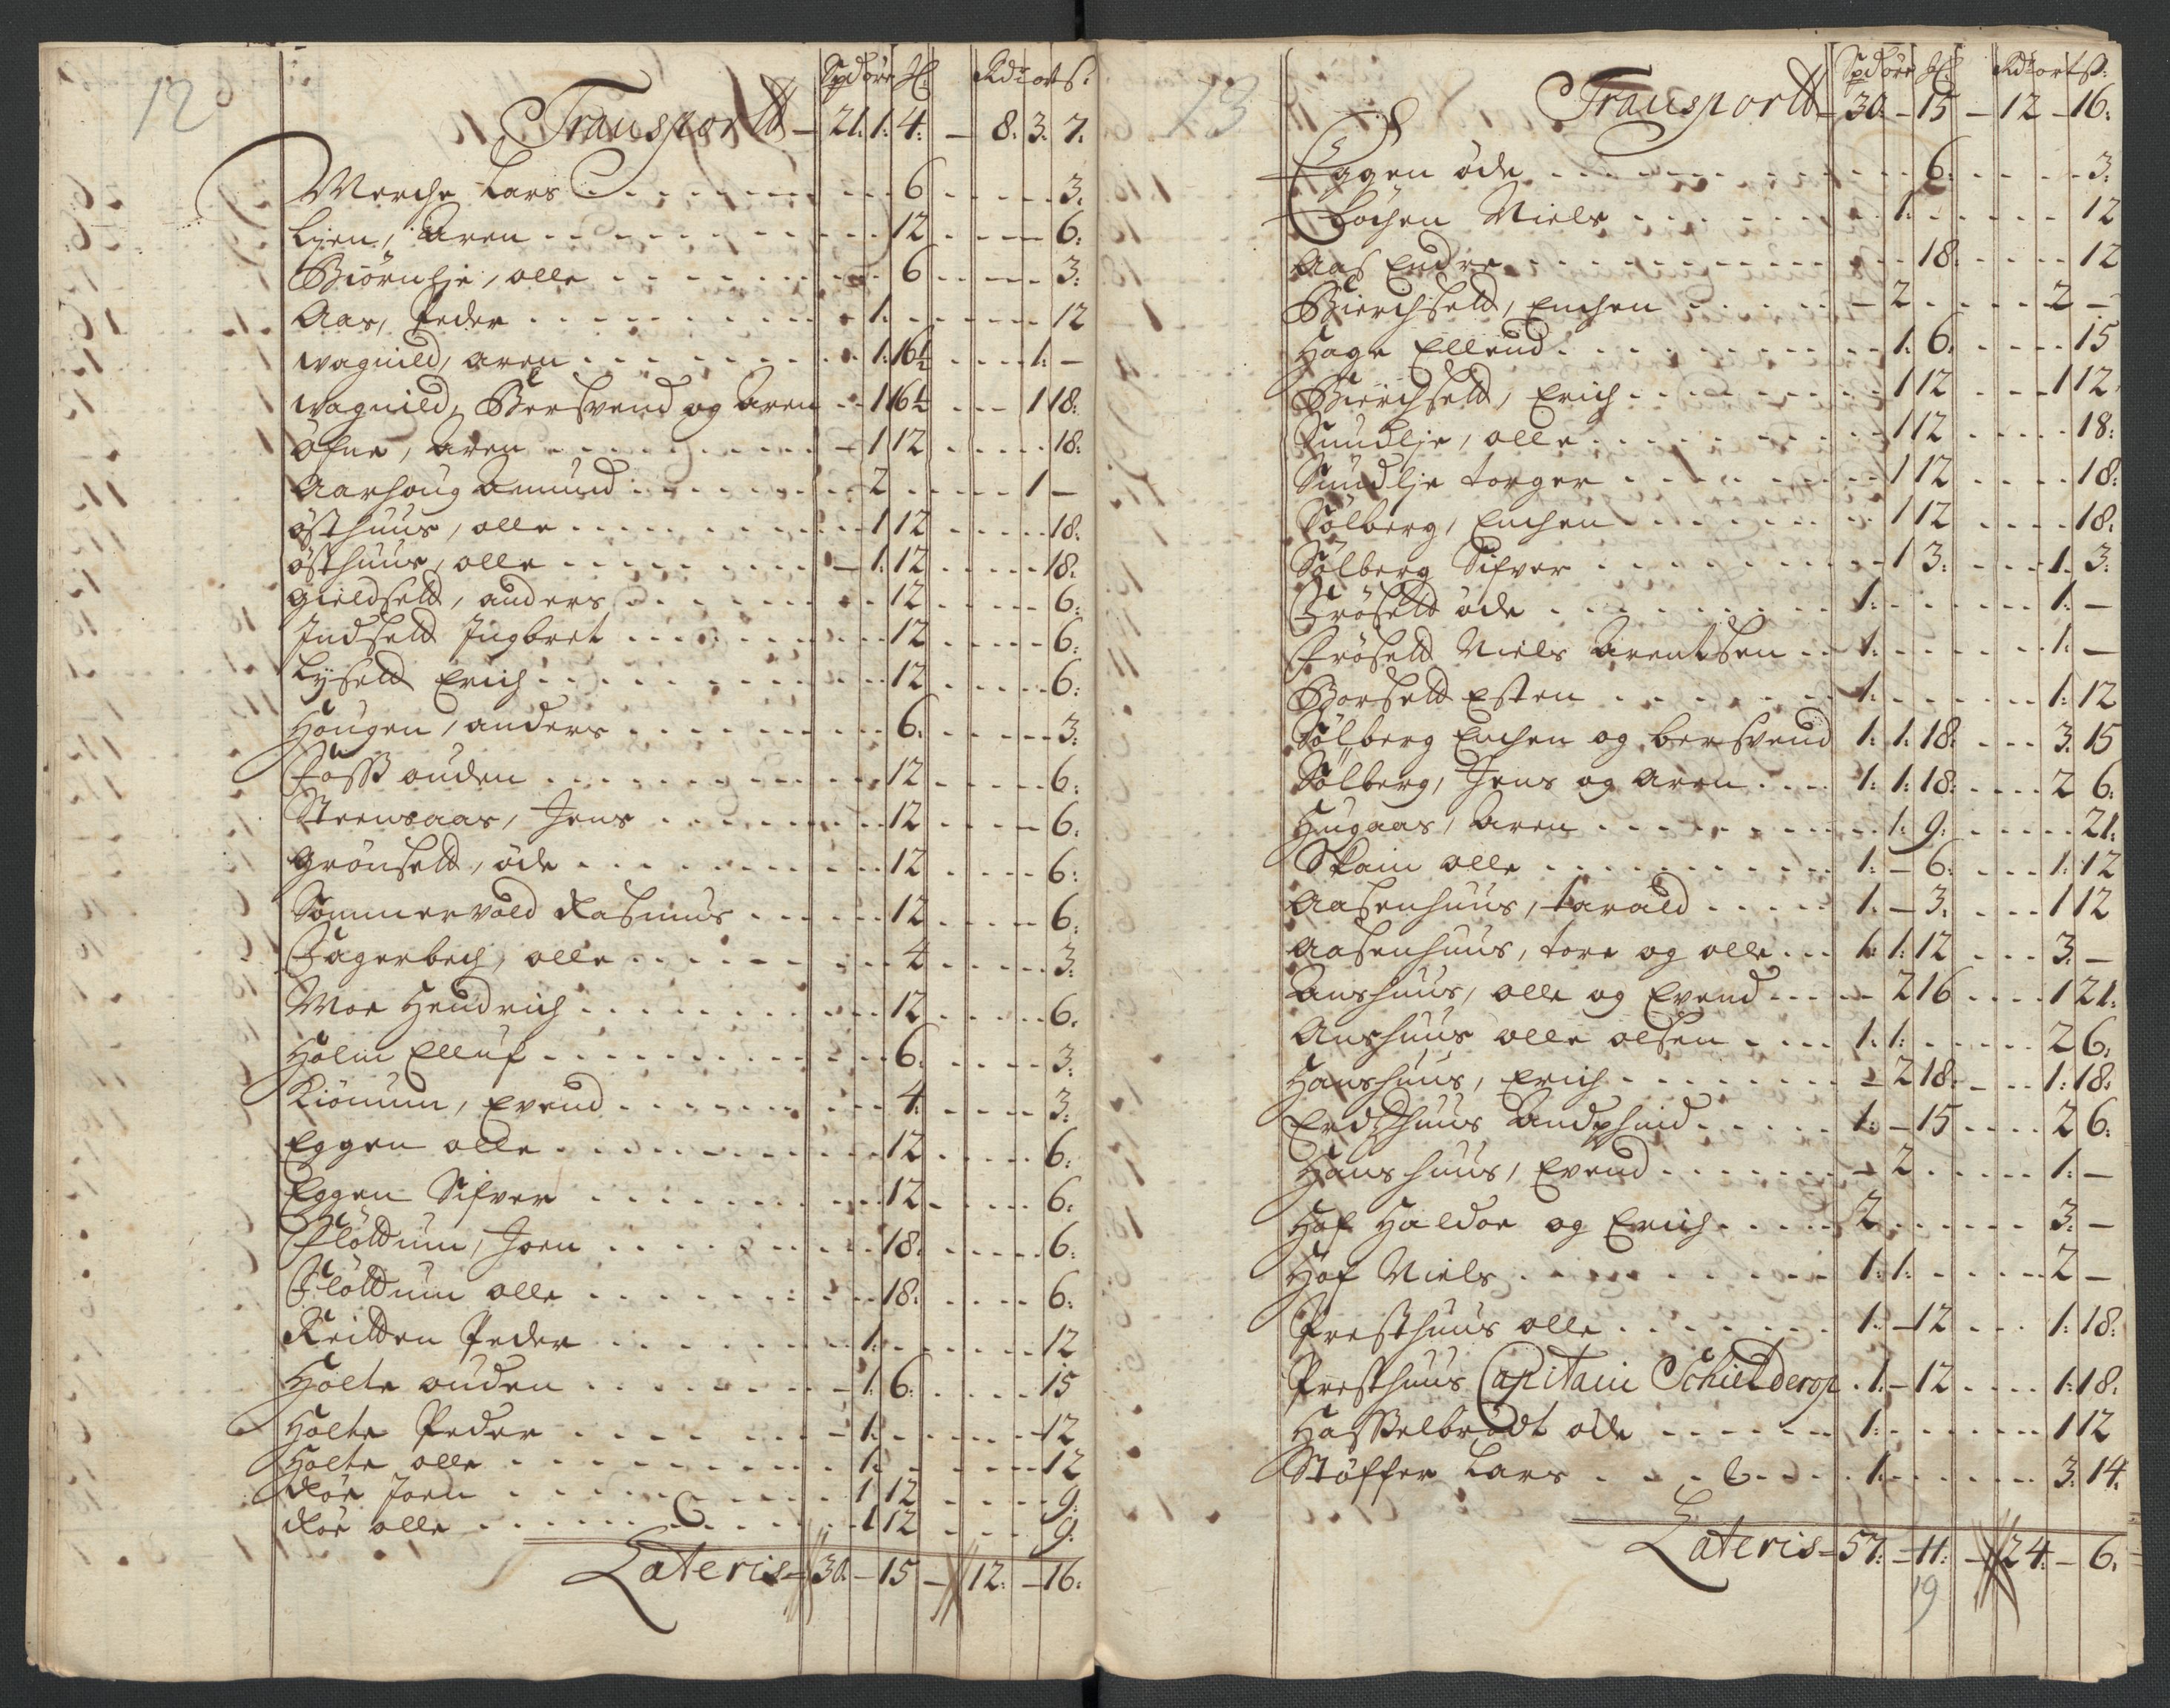 12
Spd öre ₰: Rdr ort s:
Transportt - 21: 1: 4: - 8: 3: 7:
Merche Lars 6 3:
Lien, Aren 12 6:
Biörnlje, olle 6 3:
Aas, Peder 1: 12
wagnild, aren 1: 16½ 1: -
wagnild, Bersvend og Aren 1 16½ 1 18:
öfne, Aren - 1 12 18:
Aarhoug Amund 2 1 -
östhuus, olle 1 12 18:
östhuus, olle - 1: 12 18:
gieldsett, anders 12 6:
Indsett Ingbret 12 6:
Lysett Erich 12 6:
Hougen, anders 6: 3:
Foss ouden 12 6:
Steensaas, Jens 12 6:
Grönsett, öde 12 6:
Sommervold Rasmus 12 6:
Fagerbech, olle 4 3:
Moe Hendrich 12 6:
Holm Elluf 6: 3:
Kiönum, Evend 4: 3:
Eggen olle 12 6:
Eggen Sifver 12 6:
Flöttum, Joen 18: 6:
Flöttum olle 18: 6:
Reitten Peder 1: 12
Holte ouden - 1: 6: 15
Holte Peder - 1: 12
Holte olle 1: 12
Röe Joen 1 12 9:
Röe olle 1 12 9:
Lateris - 30 - 15 - 12: - 16:
13
Spd öre ₰: Rdr ort s:
Transportt - 30 - 15 - 12 - 16:
Eggen öde 6: 3:
Löchen Niels 1: 12
Aas Endre 18: 12
Bierchsett, Enchen - 2 2 -
Hage Ellend 1: 6: 15
Bierchsett, Erich 1 12 1 12:
Sundlje, olle 1 12 18:
Sundlje torger 1 12 18:
Solberg, Enchen 1 12 18:
Solberg Sifver 1 3: 1: 3:
Fröset öde 1: 1: -
Frösett Niels Arentsen 1: 1: -
Borsett Esten 1: 1: 12
Solberg Enchen og bersvend 1: 1: 18: 3: 15
Solberg, Jens og Aren 1: 1: 18: 2 6:
Hugaas, Aren 1: 9: 21:
Skain olle 1: - 6: 1: 12
Aasenhuus, tarald 1: - 3: 1 12
Aasenhuus, tore og olle 1: 1: 12 3: -
Aunshuus, olle og Evend - 2 16 1 21:
Aushuus olle olsen 1: 1: 2 6:
Hanshuus, Erich - 2 18: 1: 18:
1: - 15 2 6:
Hanshuus, Evend - 2 1: -
Hof Haldor og Erich 2 3: -
Hof Niels 1: 1: 2 -
Presthuus olle 1: - 12 1: 18:
Presthuus Capitain Schielderop 1: - 12 1: 18:
Hasselbradt öde 1: 1 12
Stöffer Lars 1: 3: 14
Lateris - 57: - 11: - 24: - 6:
19